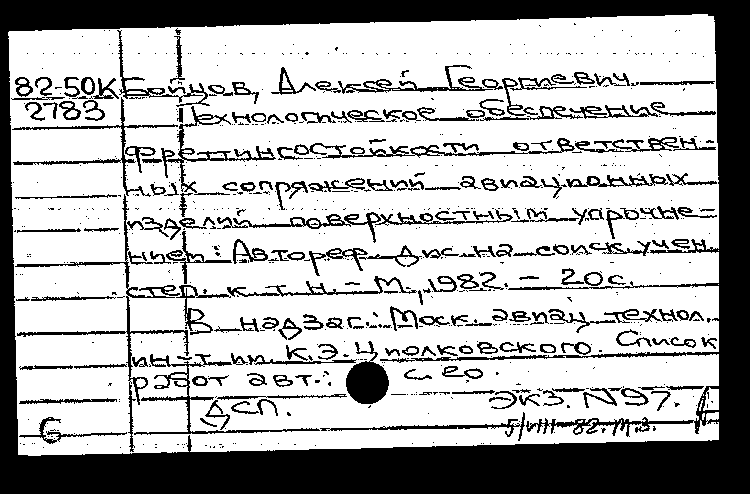 82-50К Бойцов, Алексей Георгиевич
2783 Технологическое обеспечение
фреттингостойкости ответствен-
ных сопряжений авиационных
изделий поверхностным упрочне-
нием: Автореф. дис. на соиск. учен.
степ. к. т. н. - М., 1982. - 20 с.
В надзаг.: Моск. авиац. технол.
ин-т им. К.Э. Циолковского. Список
работ авт.: с. 20.
ДСП. Экз. N 97.
G 5/VIII-82. М.З.